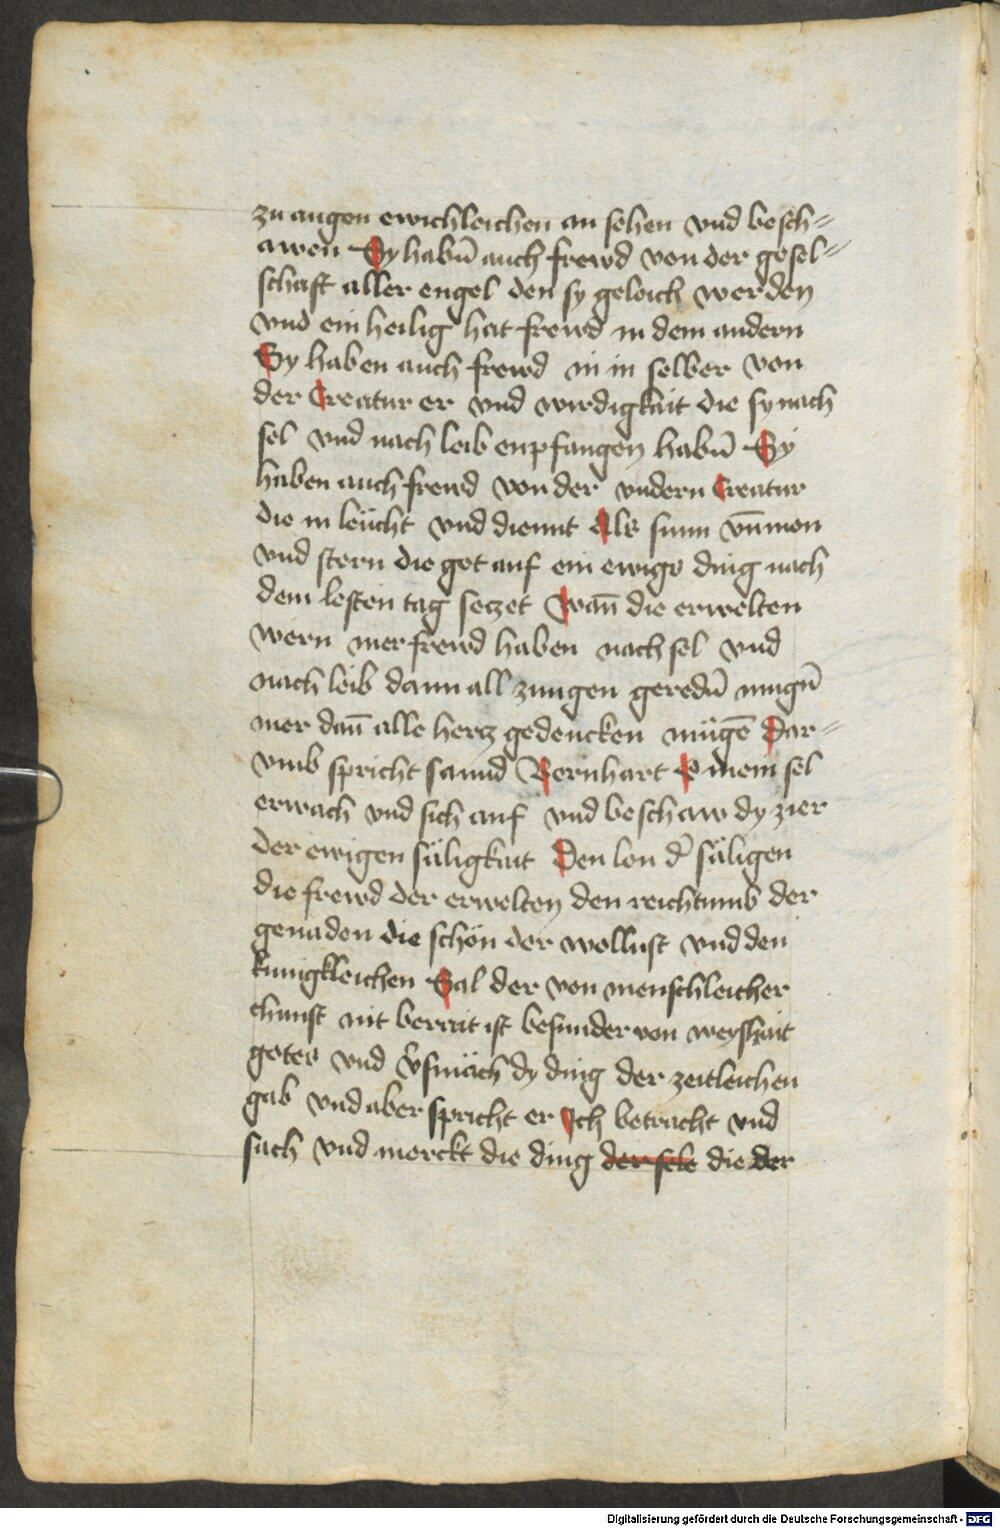 zu augen ewichleichen an sehen vnd besch⸗
awen Sy habn̄ auch frewd von der gesel⸗
schaft aller engel den sy geleich werden
vnd ein heilig hat frewd in dem andern
Sy haben auch frewd in in selber von
der Creatur er vnd wirdigkait die sy nach
sel vnd nach leib enpfangen habn̄ Sy
haben auch frewd von der vndern Creatur
die in leücht vnd diennt Als sunn vn̄ mon
vnd stern die got auf ein ewigs ding nach
dem lesten tag seczet Wan̄ die erwelten
wern mer frewd haben nach sel vnd
nach leib dann all zungen geredn̄ mugn̄
mer dan̄ alle hertz gedencken mügē Dar⸗
vmb spricht sannd Bernhart O mein sel
erwach vnd sich auf vnd beschaw dy zier
der ewigen säligkait Den lon d̄ säligen
die frewd der erwelten den reichtumb der
genaden die schön der wollust vnd den
kunigkleichen Sal der von menschleicher
chunst nit berait ist besunder von weyshait
gotes vnd v̄smäch dy ding der zeitleichen
gab vnd aber spricht er Ich betracht vnd
sach vnd merckt die ding der sele die der
Digitalisierung gefördert durch die Deutsche Forschungsgemeinschaft - DFG